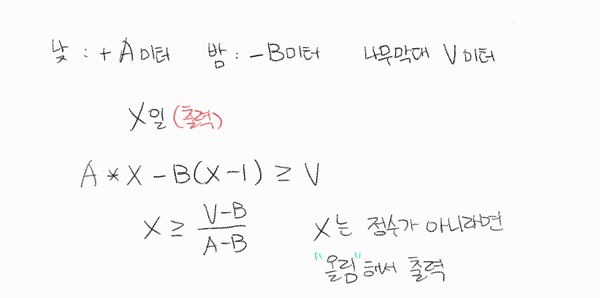 낮 : + A미터 밤 : -B미터 나무막대 V미터
X일 (출력)
A * X - B(X-1) ≥ V
X ≥ (V-B)/(A-B)
X는 정수가 아니라면
"올림"해서 출력